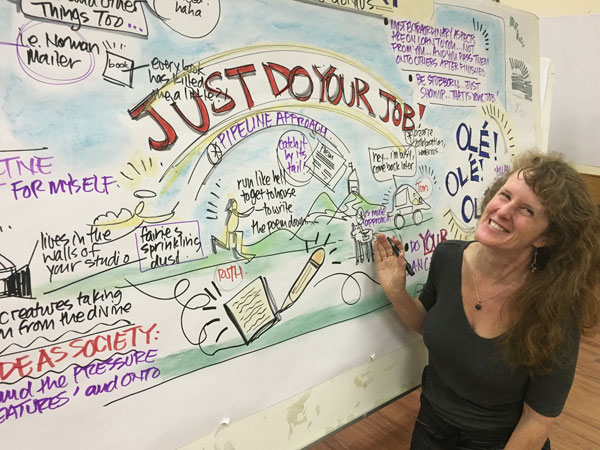 Things Too...
haha
i.e. Norman
Mailer
book
everybody
has killed
me a little
JUST DO YOUR JOB!
MOST EXTRAORDINARY ASPECTS
ARE ON LOAN TO YOU... NOT
FROM YOU... AND YOU PASS THEM
ONTO OTHERS AFTER FINISHED
BE STUBBORN. JUST
SHOW UP... THAT'S YOUR JOB!
PIPELINE APPROACH
catch it
by its
tail
Poem
run like hell
to get to house
to write
the poem down
hey... i'm busy,
come back later
bizarre
collaboration,
OLÉ!
OLÉ!
OLÉ!
TOM
FOR MYSELF.
lives in the
walls of
your studio
fairies
sprinkling
dust
RUTH
mule
approach
DO YOUR
creatures taking
from the divine
AS SOCIETY:
and the PRESSURE
and ONTO